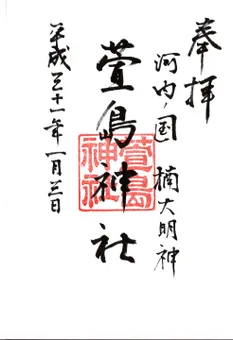 奉拝
河内ノ国 楠大明神
萱島神社
萱島神社
平成三十一年一月三日